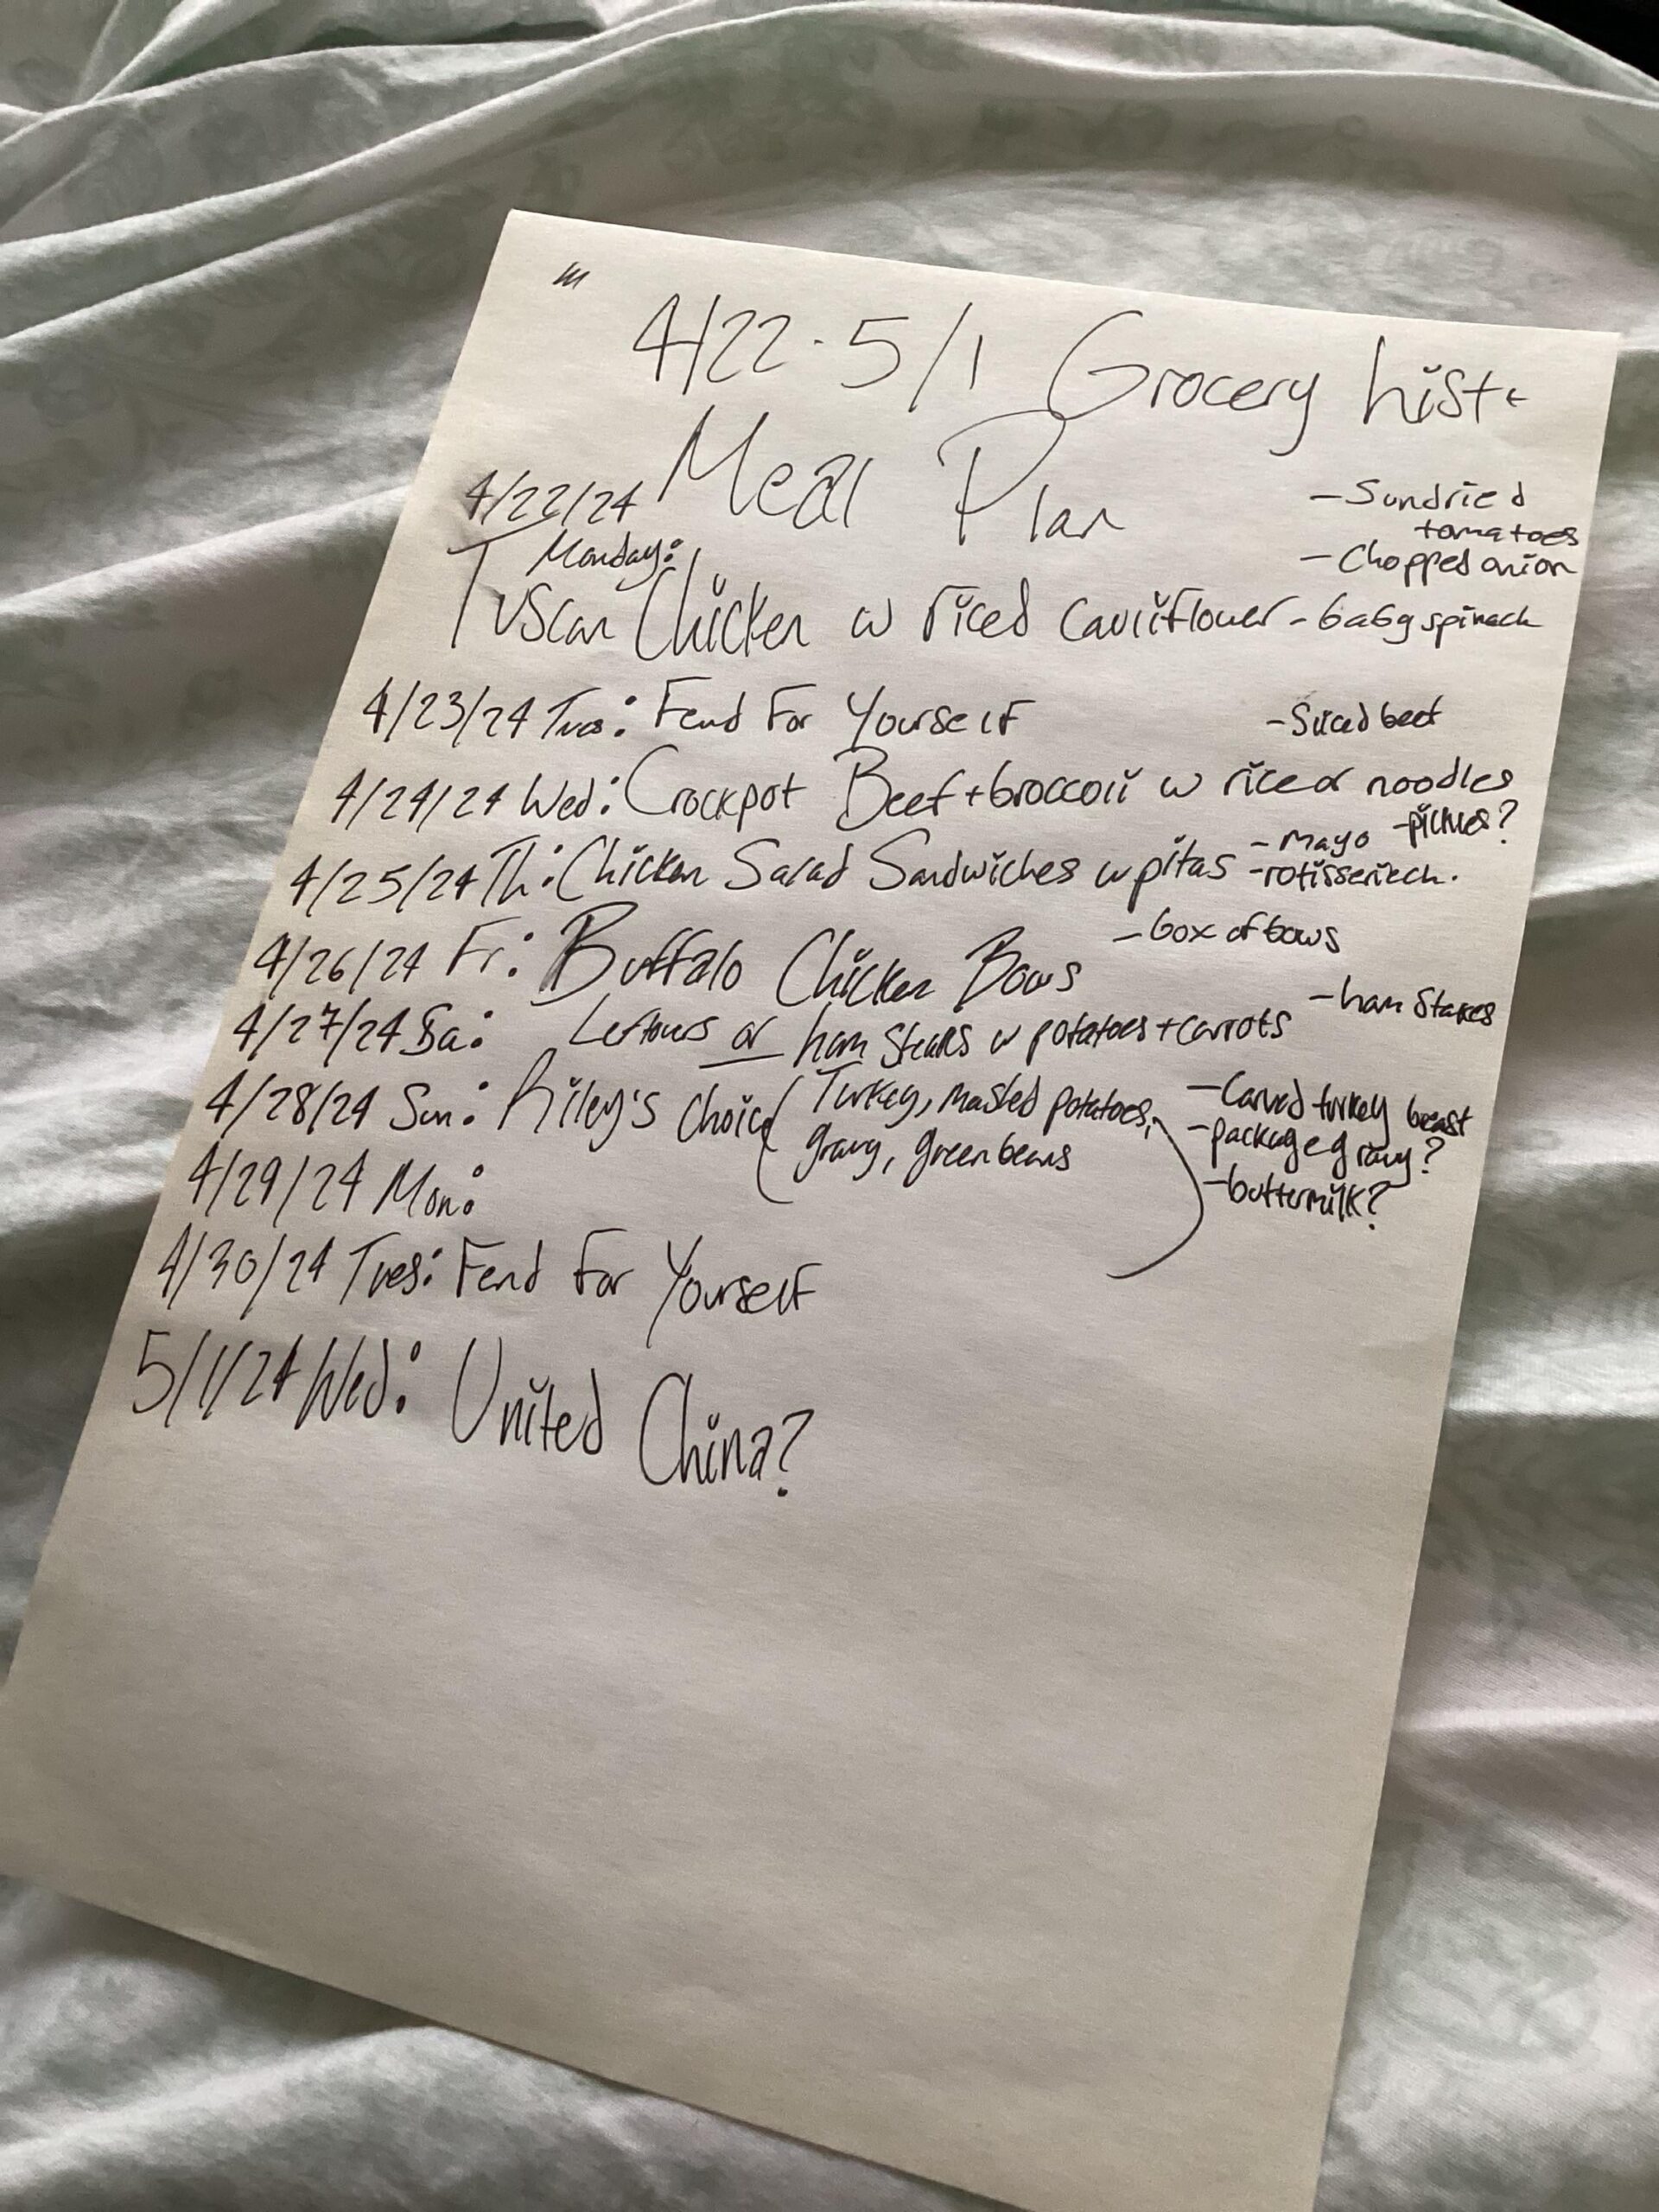 4/22-5/1 Grocery List +
Meal Plan
4/22/24
Monday:
- Sundried
tomatoes
- Chopped onion
Tuscan Chicken w riced cauliflower - baby spinach
4/23/24 Tues: Fend For Yourself
- Sliced beef
4/24/24 Wed: Crockpot Beef + broccoli w rice or noodles
- Mayo - pickles?
4/25/24 Th: Chicken Salad Sandwiches w pitas - rotisserie ch.
- box of bows
4/26/24 Fr: Buffalo Chicken Bows
- ham stakes
4/27/24 Sa: Leftovers or ham steaks w potatoes + carrots
4/28/24 Sun: Riley's Choice (Turkey, mashed potatoes,
gravy, green beans)
- Carved turkey breast
- package gravy?
- buttermilk?
4/29/24 Mon:
4/30/24 Tues: Fend For Yourself
5/1/24 Wed: United China?